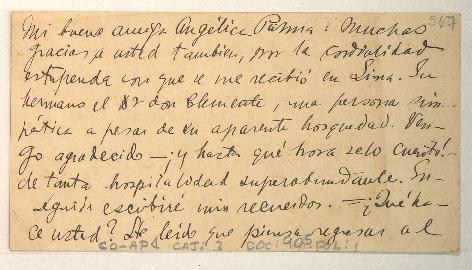 Mi buena amiga Angélica Palma: Muchas
gracias a usted tambien, por la cordialidad
estupenda con que se me recibió en Lima. Su
hermano el Dr don Clemente, una persona sim-
pática a pesar de su aparente hosquedad. Ven-
go agradecido — ¡y hasta qué hora se lo cuento!-
de tanta hospitalidad superabundante. En-
seguida escribiré mis recuerdos. — ¿Qué ha-
ce usted? He leído que piensa regresar al
367
CO-AP4 CAJ: 3 DOC: 905 FOL: 1